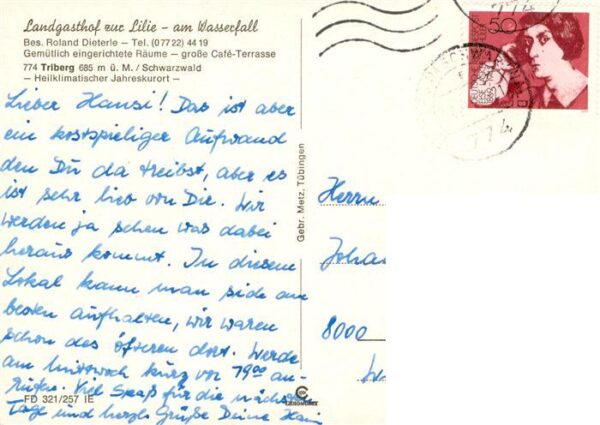 Landgasthof zur Lilie - am Wasserfall
Bes. Roland Dieterle – Tel. (07722) 44 19
Gemütlich eingerichtete Räume – große Café-Terrasse
774 Triberg 685 m ü. M. / Schwarzwald
– Heilklimatischer Jahreskurort –
Lieber Hansi! Das ist aber
ein kostspieliger Aufwand
den Du da treibst, aber es
ist sehr lieb von Dir. Wir
werden ja sehen was dabei
heraus kommt. In diesem
Lokal kann man sich am
besten aufhalten, wir waren
schon des öfteren dort. Werde
am Mittwoch kurz vor 19⁰⁰ an-
rufen. Viel Spaß für die nächsten
Tage und herzl. Grüße Deine
FD 321/257 IE
Gebr. Metz, Tübingen
50
774
Herrn
Joha
8000